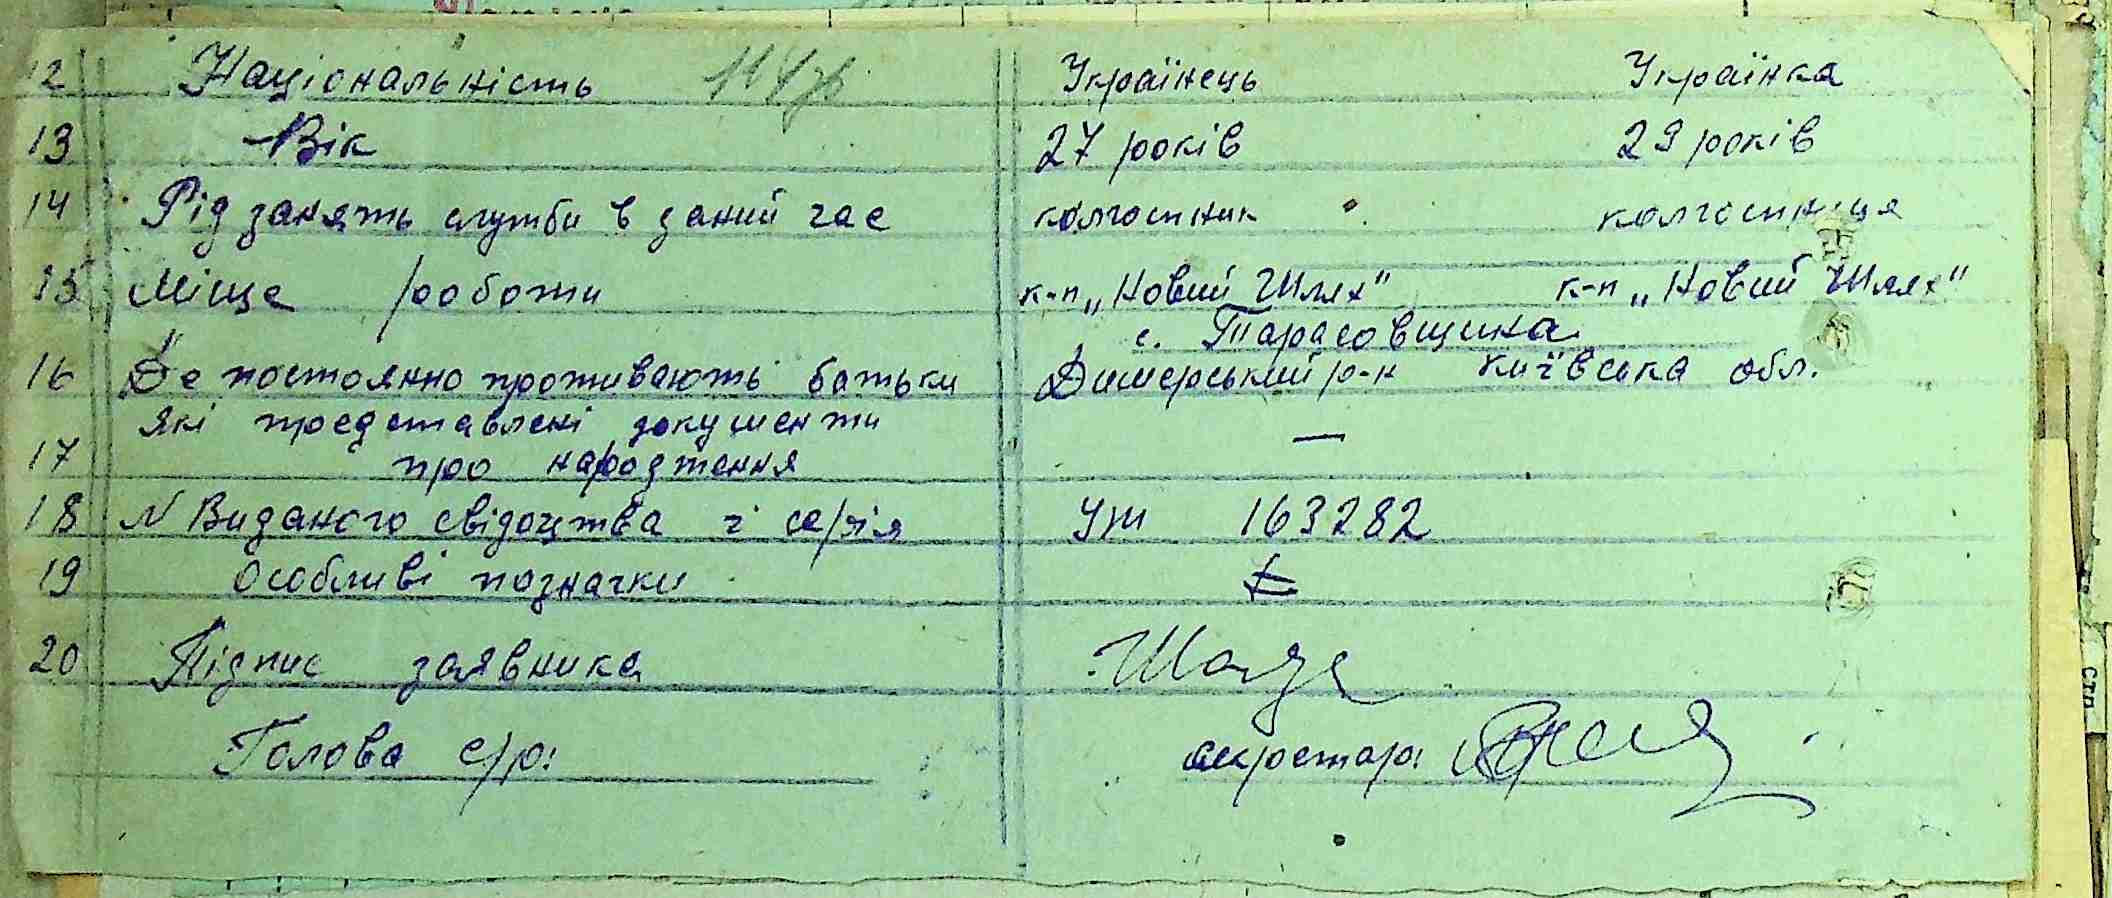 12 Національність Українець Українка
13 Вік 27 років 29 років
14 Рід занять служби в даний час колгоспник колгоспниця
15 Місце роботи к-п „Новий Шлях" к-п „Новий Шлях"
с. Тарасовщина
16 Де постоянно проживають батьки Димерський р-н Київська обл.
які представлені документи —
17 про народження
18 N Виданого свідоцтва і серія УЖ 163282
19 Особливі позначки
20 Підпис заявника
Голова с/р: секретар: